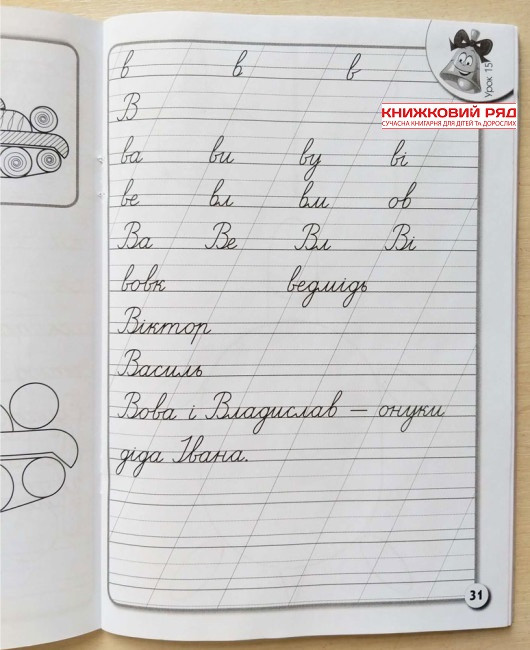 в в в
Урок 15
В
КНИЖКОВИЙ РЯД
СУЧАСНА КНИГАРНЯ ДЛЯ ДІТЕЙ ТА ДОРОСЛИХ
ва ви ву ві
ве вл вм ов
Ва Ве Вл Ві
вовк ведмідь
Віктор
Василь
Вова і Владислав — онуки
діда Івана.
31